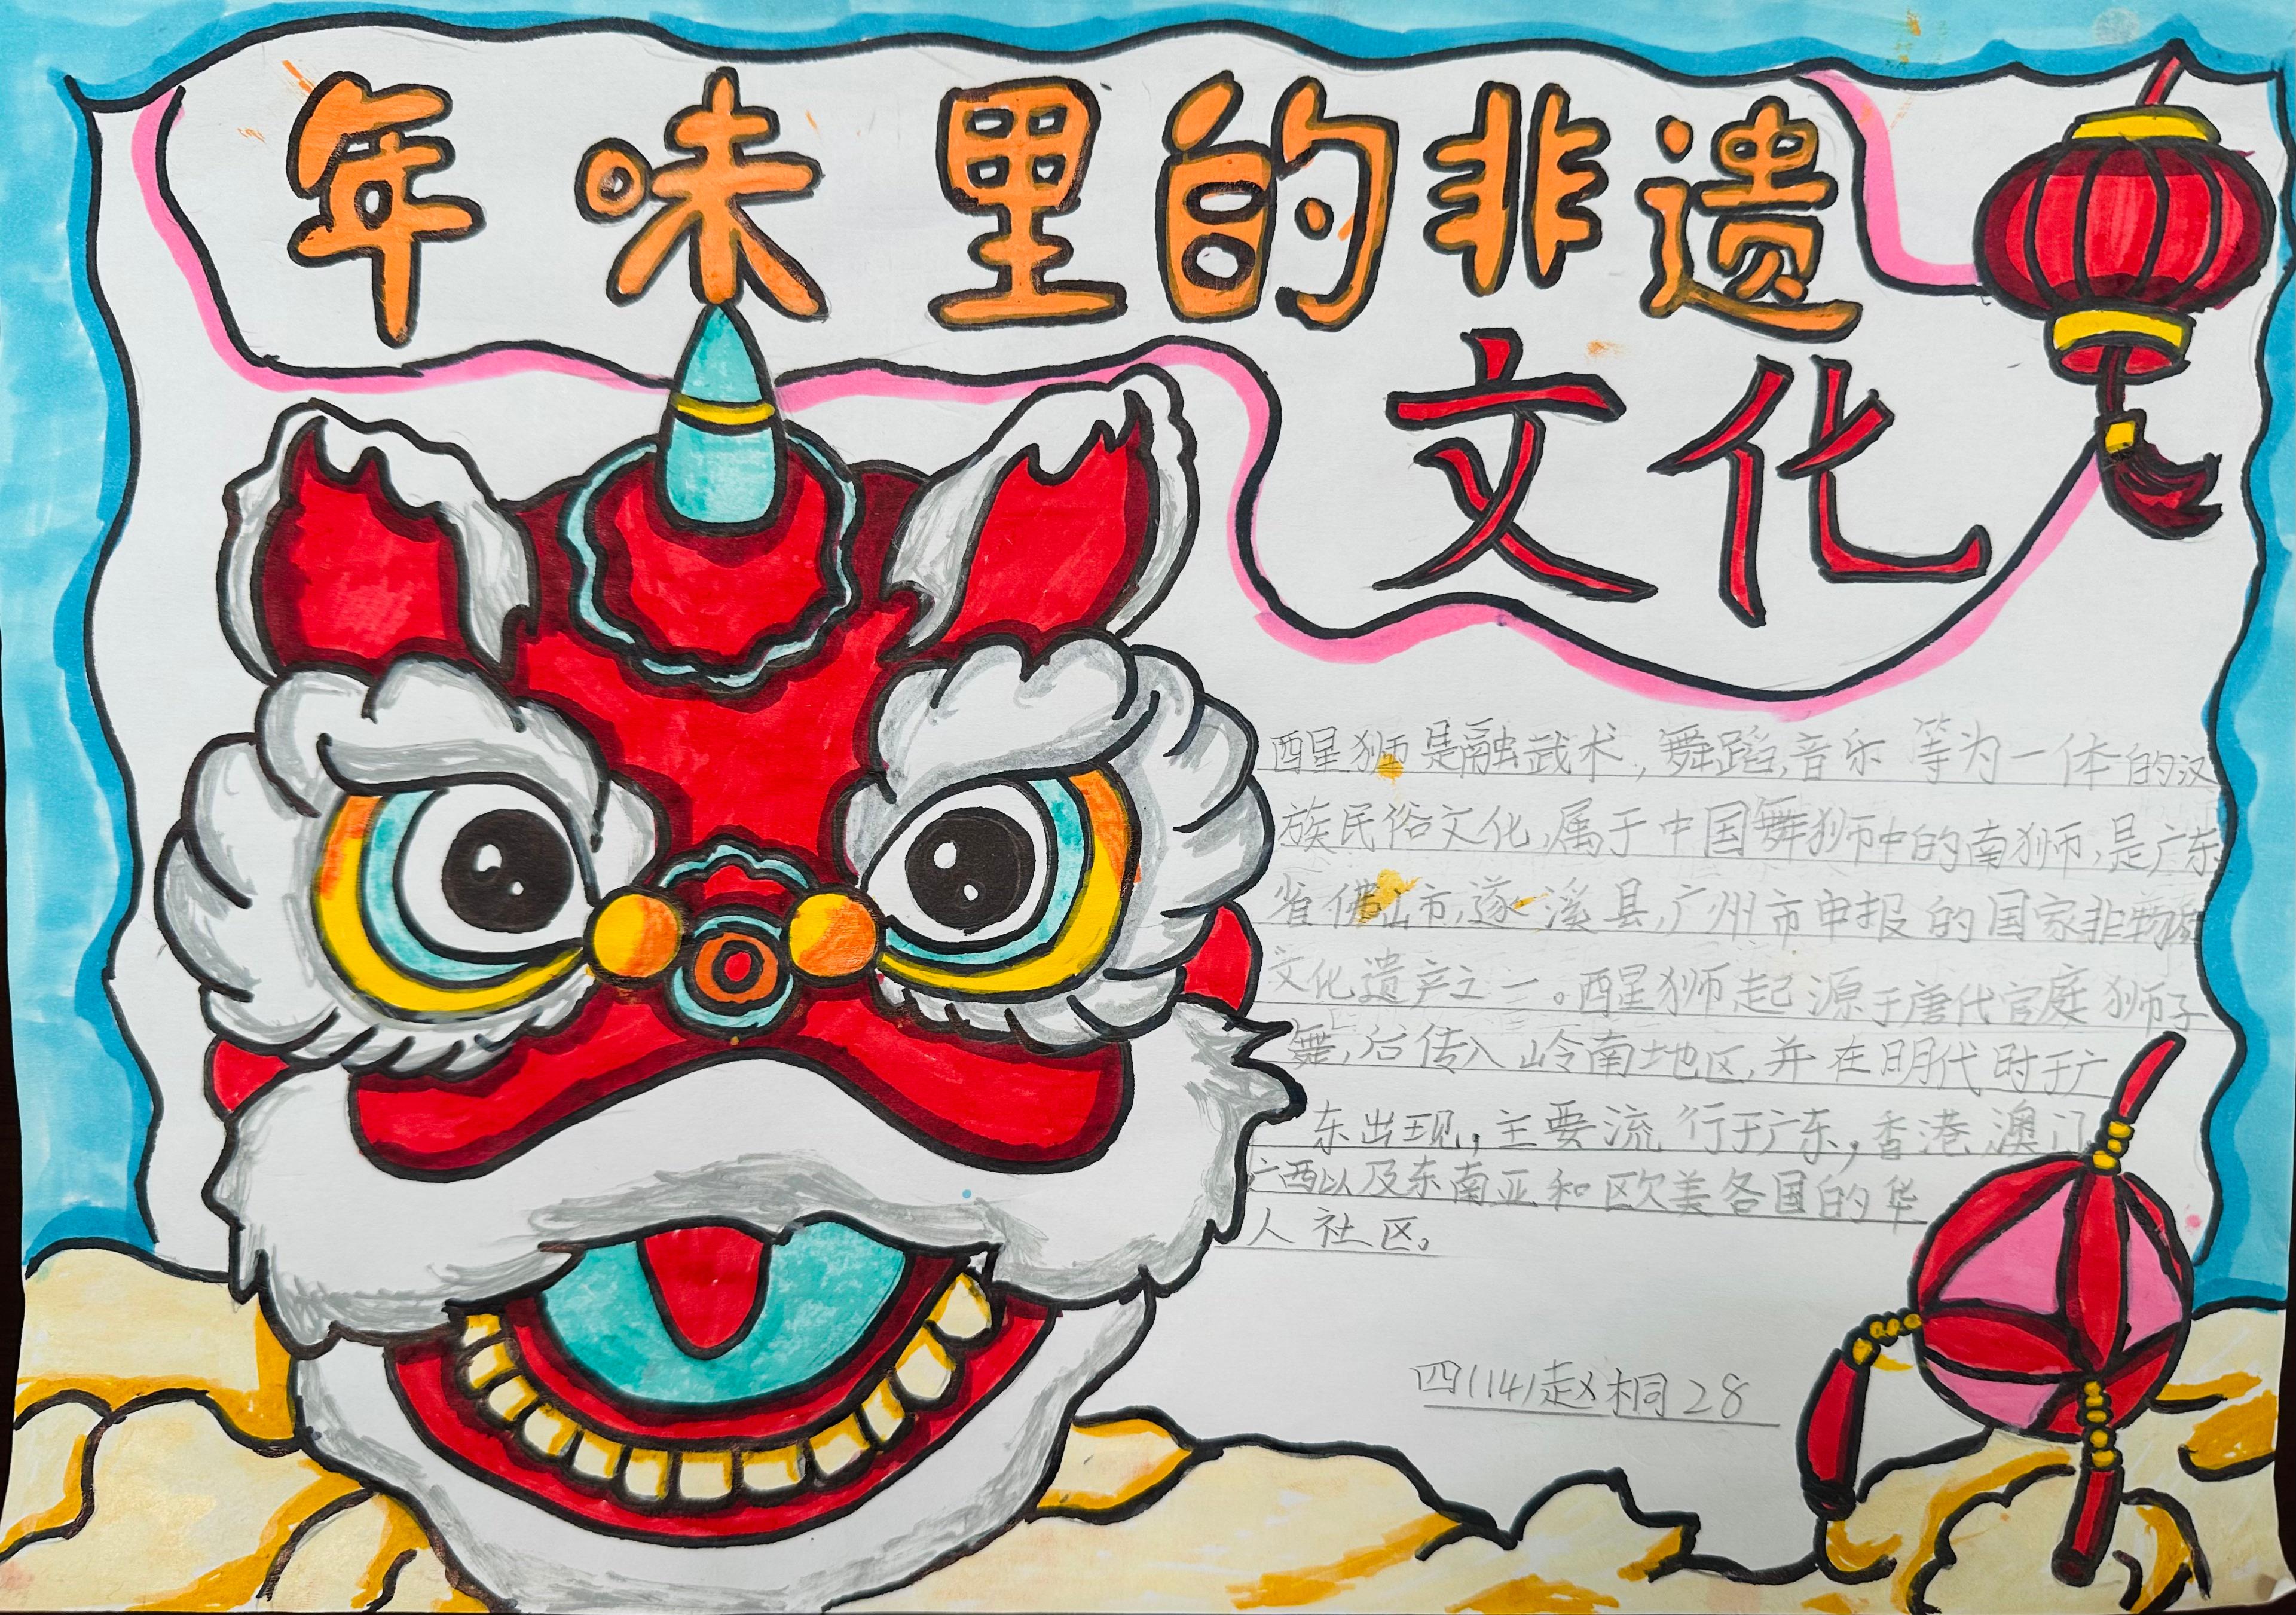 年味里的非遗
文化
醒狮是融武术,舞蹈,音乐等为一体的汉
族民俗文化,属于中国舞狮中的南狮,是广东
省佛山市,遂溪县,广州市申报的国家非物质
文化遗产之一。醒狮起源于唐代宫庭狮子
舞,后传入岭南地区,并在明代时于广
东出现,主要流行于广东,香港,澳门
广西以及东南亚和欧美各国的华
人社区。
四(14)赵桐28